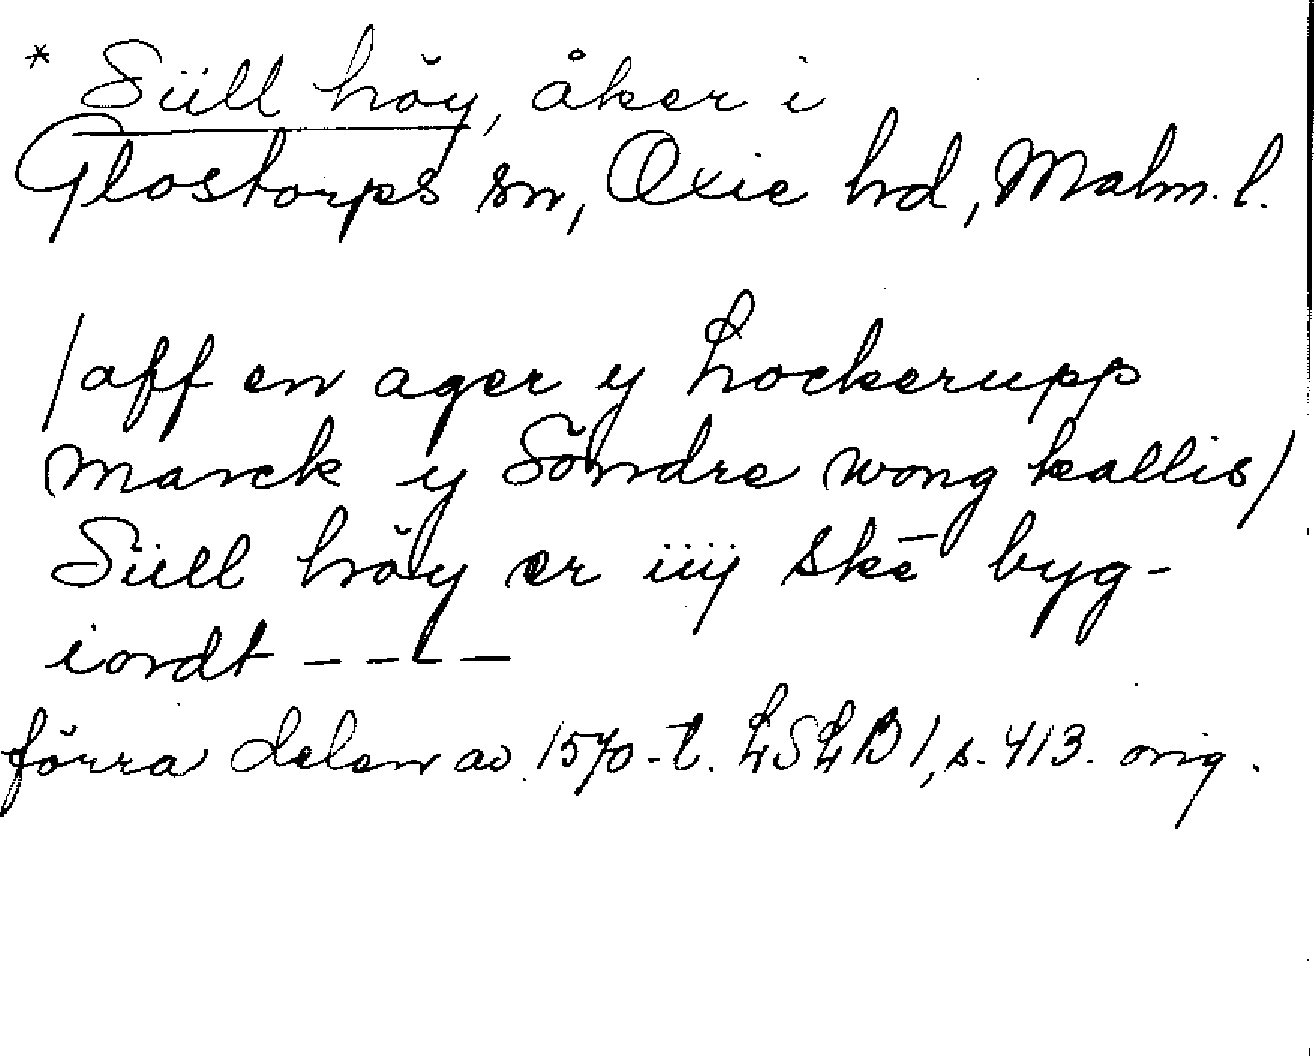 * Süll höy, åker i
Glostorps sn, Oxie hd, Malm. l.
/aff en ager y Lockerupp
marck y Söndre wong kallis/
Süll höy er iiij skē byg-
iordt ----
förra delen av 1570-t. LSLB 1, s. 413. orig.